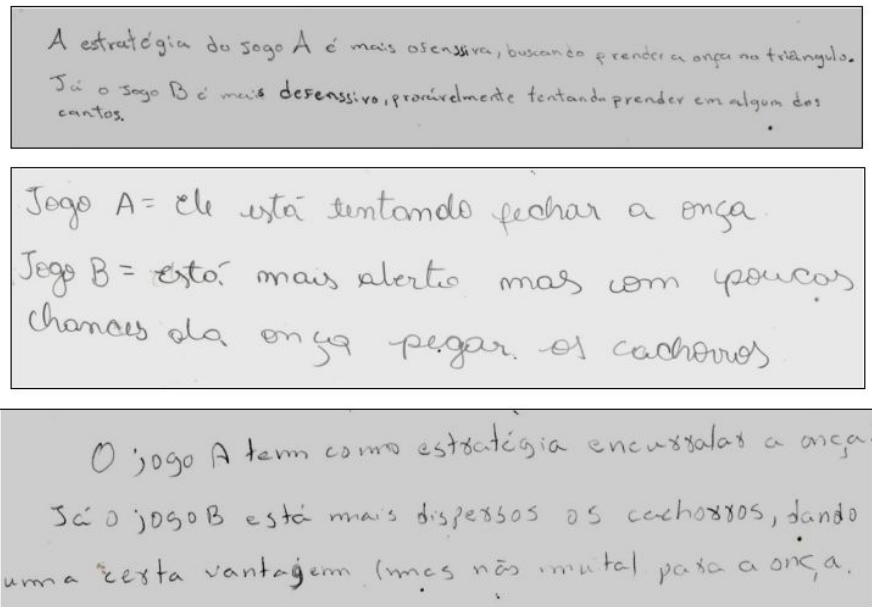 A estratégia do jogo A é mais ofenssiva, buscando prender a onça no triângulo.
Já o jogo B é mais defenssivo, provávelmente tentando prender em algum dos
cantos.
Jogo A = ele está tentando fechar a onça.
Jogo B = está mais aberto mas com poucas
chances da onça pegar os cachorros
O jogo A tem como estratégia encurralar a onça.
Já o jogo B está mais dispersos os cachorros, dando
uma certa vantagem (mas não muita) para a onça.